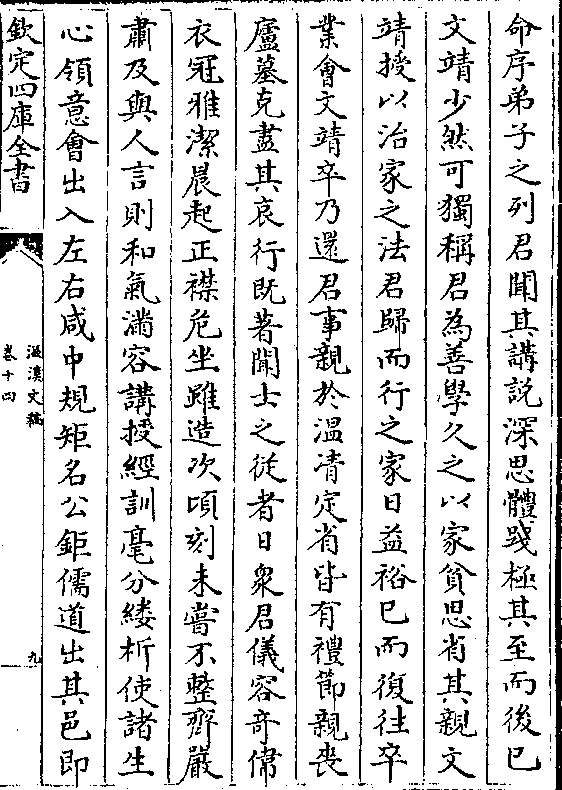 命序弟子之列君聞其講説深思體踐極其至而後已
文靖少然可獨稱君為善學久之以家貧思省其親文
靖授以治家之法君歸而行之家日益裕已而復往卒
業㑹文靖卒乃還君事親於温凊定省皆有禮節親喪
廬墓克盡其哀行既著聞士之従者日衆君儀容竒偉
衣冠雅潔晨起正襟危坐雖造次頃刻未嘗不整齊嚴
肅及與人言則和氣滿容講授經訓毫分縷析使諸生
心領意㑹出入左右咸中規矩名公鉅儒道出其邑即
欽定四庫全書
滋溪文稿
卷十四
九